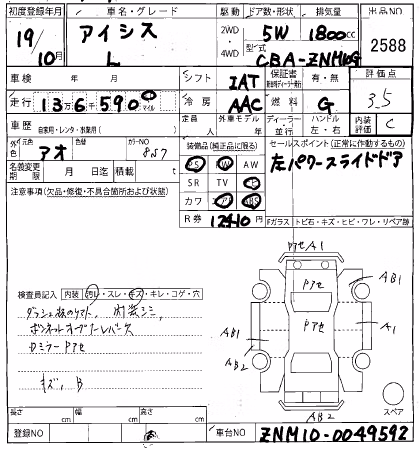 初度登録年月 車名・グレード 駆動 ドア数・形状 排気量 出品NO
19/10月 アイシス L 2WD・4WD 5W 1800cc 2588
型式 CBA-ZNM10G
車検 年 月 シフト IAT 保証書 有・無 評価点
走行 13万6590 マイル 冷房 AAC 燃料 G 3.5
車歴 自家用・レンタ・ 定員 人 外車モデル 年 ディーラー・並行 ハンドル 左・右 内装評価 C
外色 元色 アオ 色替 カラーNO 8S7 装備品 (純正品に限る) セールスポイント (正常に作動するもの)
名義変更期限 月 日迄 積載 t PS PW AW 左パワースライドドア
注意事項 (欠品・修復・不具合箇所および状態) SR TV
カワ エアB ABS
R券 12410円 Fガラス トビ石・キズ・ヒビ・ワレ・リペア跡
PアセA1
検査員記入 内装 汚レ・スレ・キズ・キレ・コゲ・穴
Pアセ
AB1
AB1
A1
AB2
Pアセ
キズ, B
スペア
AB2
長さ cm 幅 cm 高さ cm
登録NO 車台NO ZNM10-0049592